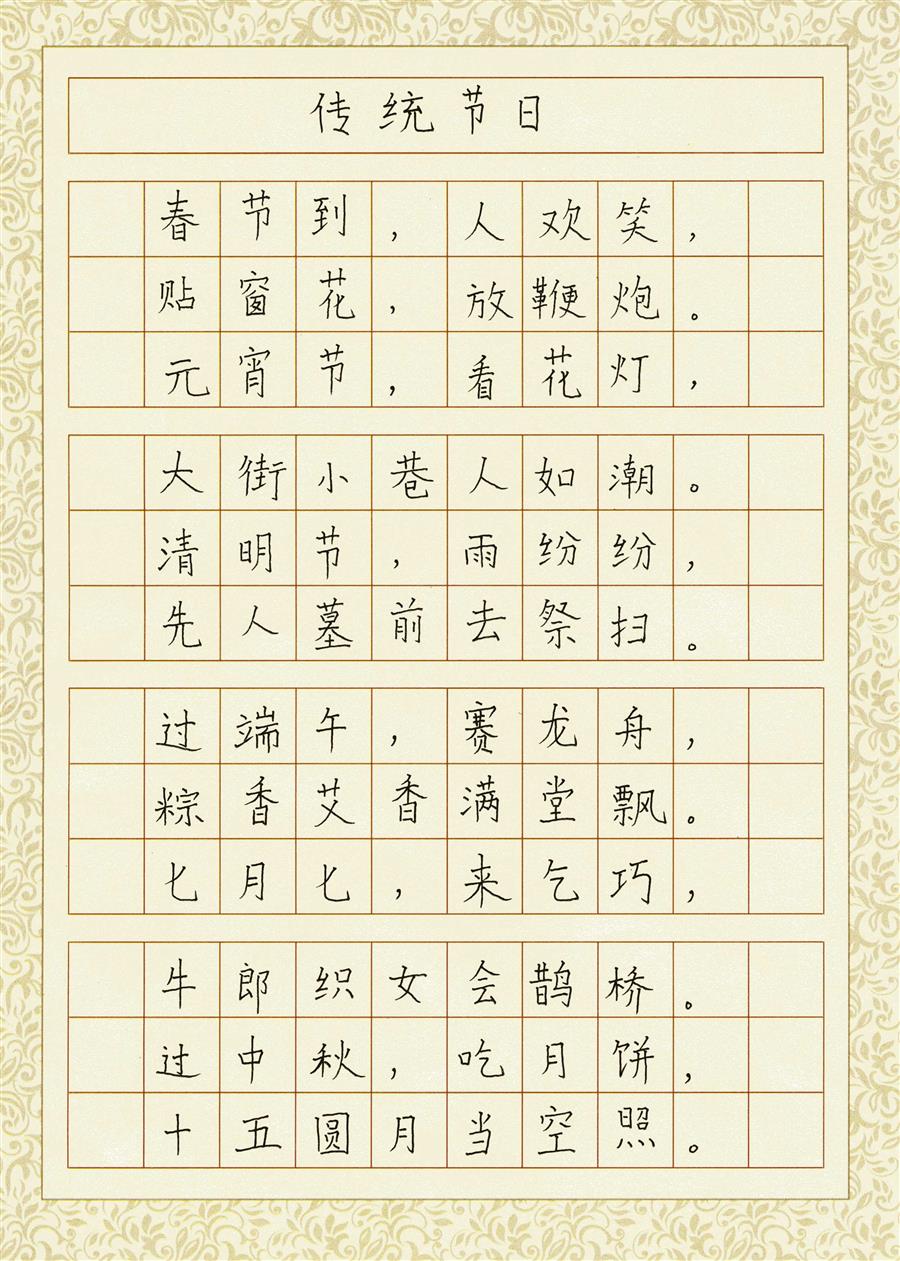 传统节日
春节到，人欢笑，
贴窗花，放鞭炮。
元宵节，看花灯，
大街小巷人如潮。
清明节，雨纷纷，
先人墓前去祭扫。
过端午，赛龙舟，
粽香艾香满堂飘。
七月七，来乞巧，
牛郎织女会鹊桥。
过中秋，吃月饼，
十五圆月当空照。